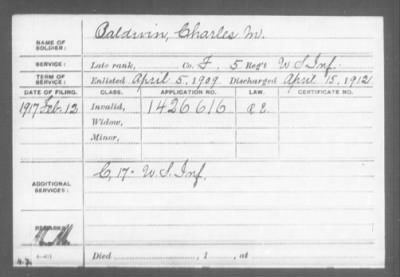 Baldwin, Charles M.
NAME OF SOLDIER:
SERVICE: Late rank, Co. F, 5 Reg't U S Inf.
TERM OF SERVICE: Enlisted April 5, 1909 Discharged April 15, 1912
DATE OF FILING. CLASS. APPLICATION NO. LAW. CERTIFICATE NO.
1917 Feb. 13 Invalid, 1426616
Widow,
Minor,
ADDITIONAL SERVICES: C, 17- U.S. Inf.
REMARKS:
Died , 1 , at